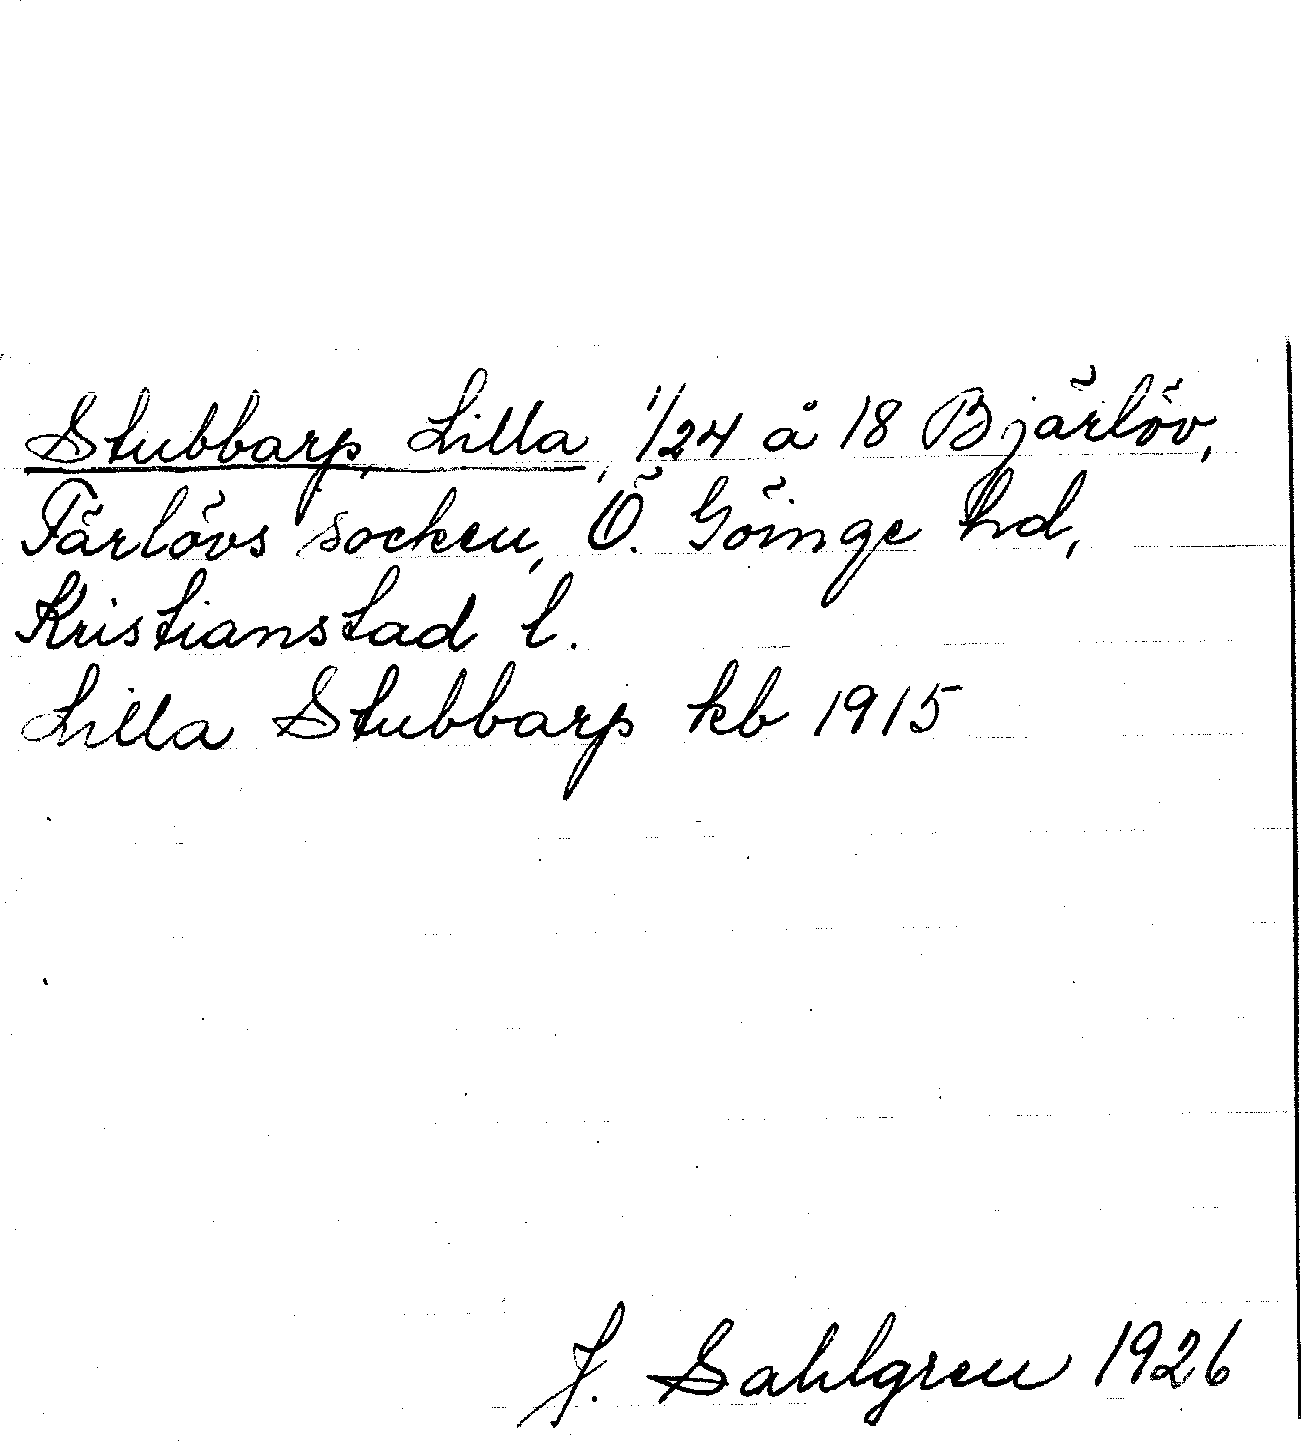 Stubbarp, Lilla, 1/24 å 18 Bjärlöv,
Färlövs socken, Ö. Göinge hd,
Kristianstad l.
Lilla Stubbarp kb 1915
J. Sahlgren 1926